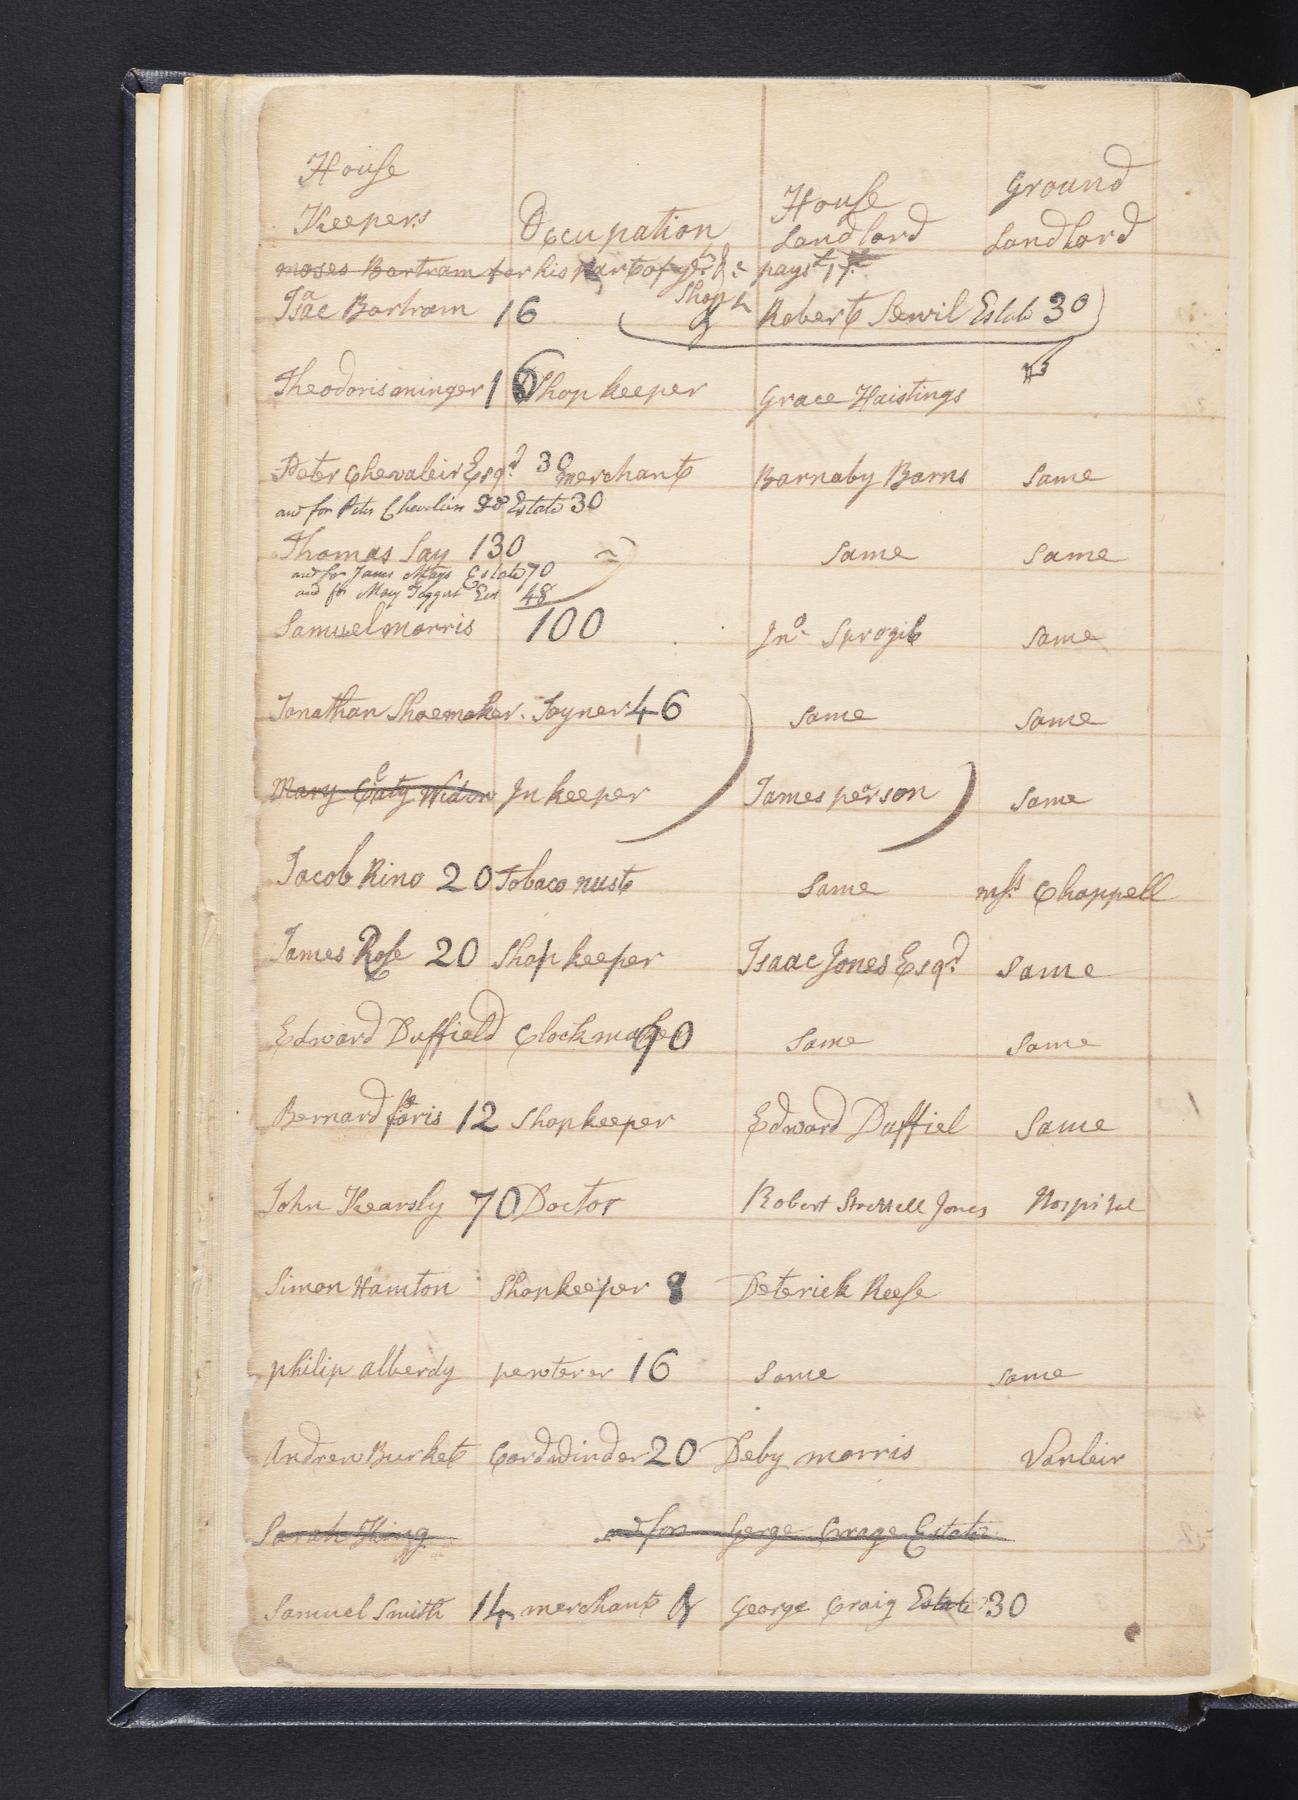 House Keepers Occupation House Landlord Ground Landlord
moses Bartram for his part of pays
Isaac Bartram 16 Shop & Robert Sewil Estate 30
Theodoris minger 16 Shop keeper Grace Haistings
Peter Chevaleir Esqr 30 merchant Barnaby Barns Same
and for Peter Chevaliers Estate 30
Thomas Say 130 Same Same
and for James Estate 70
and for Mary Taggart Est 48
Samuel morris 100 Jno Sprogil Same
Jonathan Shoemaker. Joyner 46 Same Same
Mary Widow Jnkeeper James person Same
Jacob Rino 20 Tobaconust Same Chappell
James Rose 20 Shop keeper Isaac Jones Esqr Same
Edward Duffield Clockmaker 90 Same Same
Bernard 12 Shopkeeper Edward Duffiel Same
John Kearsly 70 Doctor Robert Strettell Jones Hospital
Simon Hamton Shopkeeper 8 Deterick Reese
philip alberdy pewterer 16 Same same
Andrew Burket Cordwinder 20 Deby morris Vanleir
Sarah King and for Gerge Estate
Samuel Smith 14 merchant & George Craig Estate 30